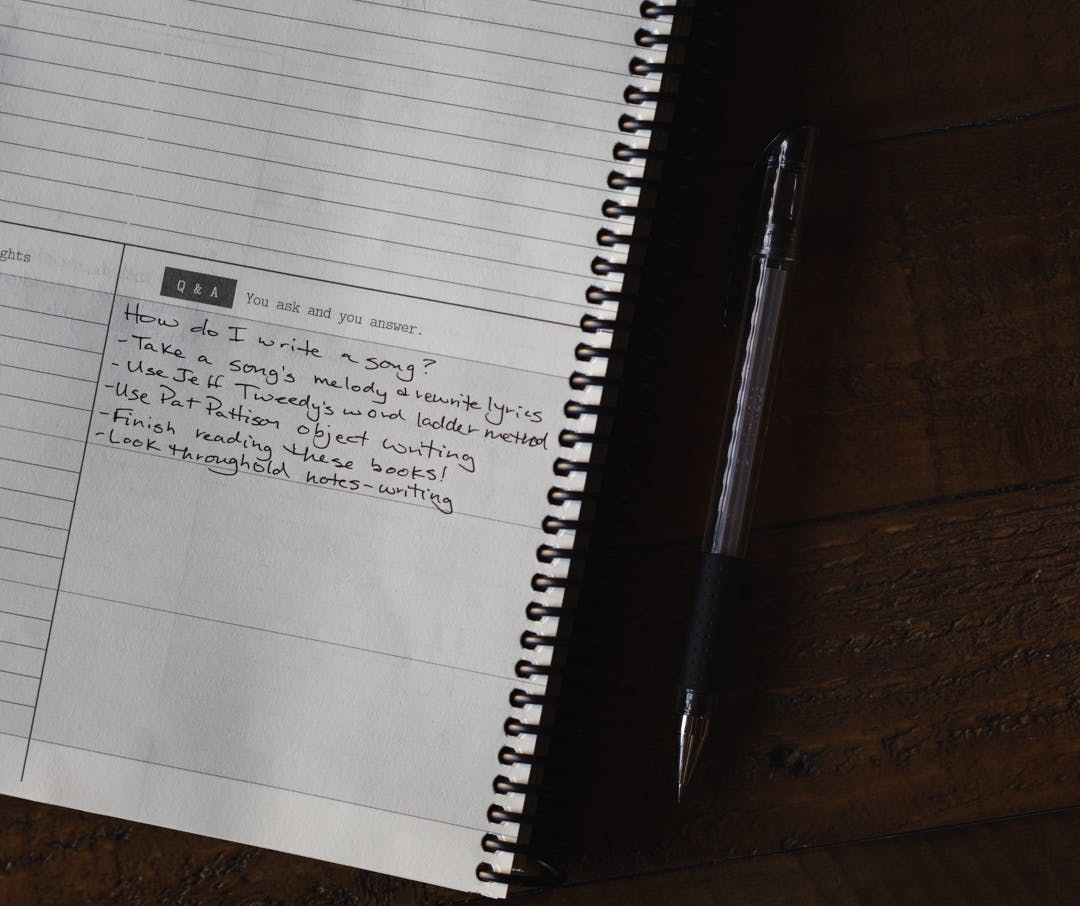 ghts
Q & A You ask and you answer.
How do I write a song?
- Take a song's melody & rewrite lyrics
- Use Jeff Tweedy's word ladder method
- Use Pat Pattison object writing
- Finish reading these books!
- Look through old notes - writing